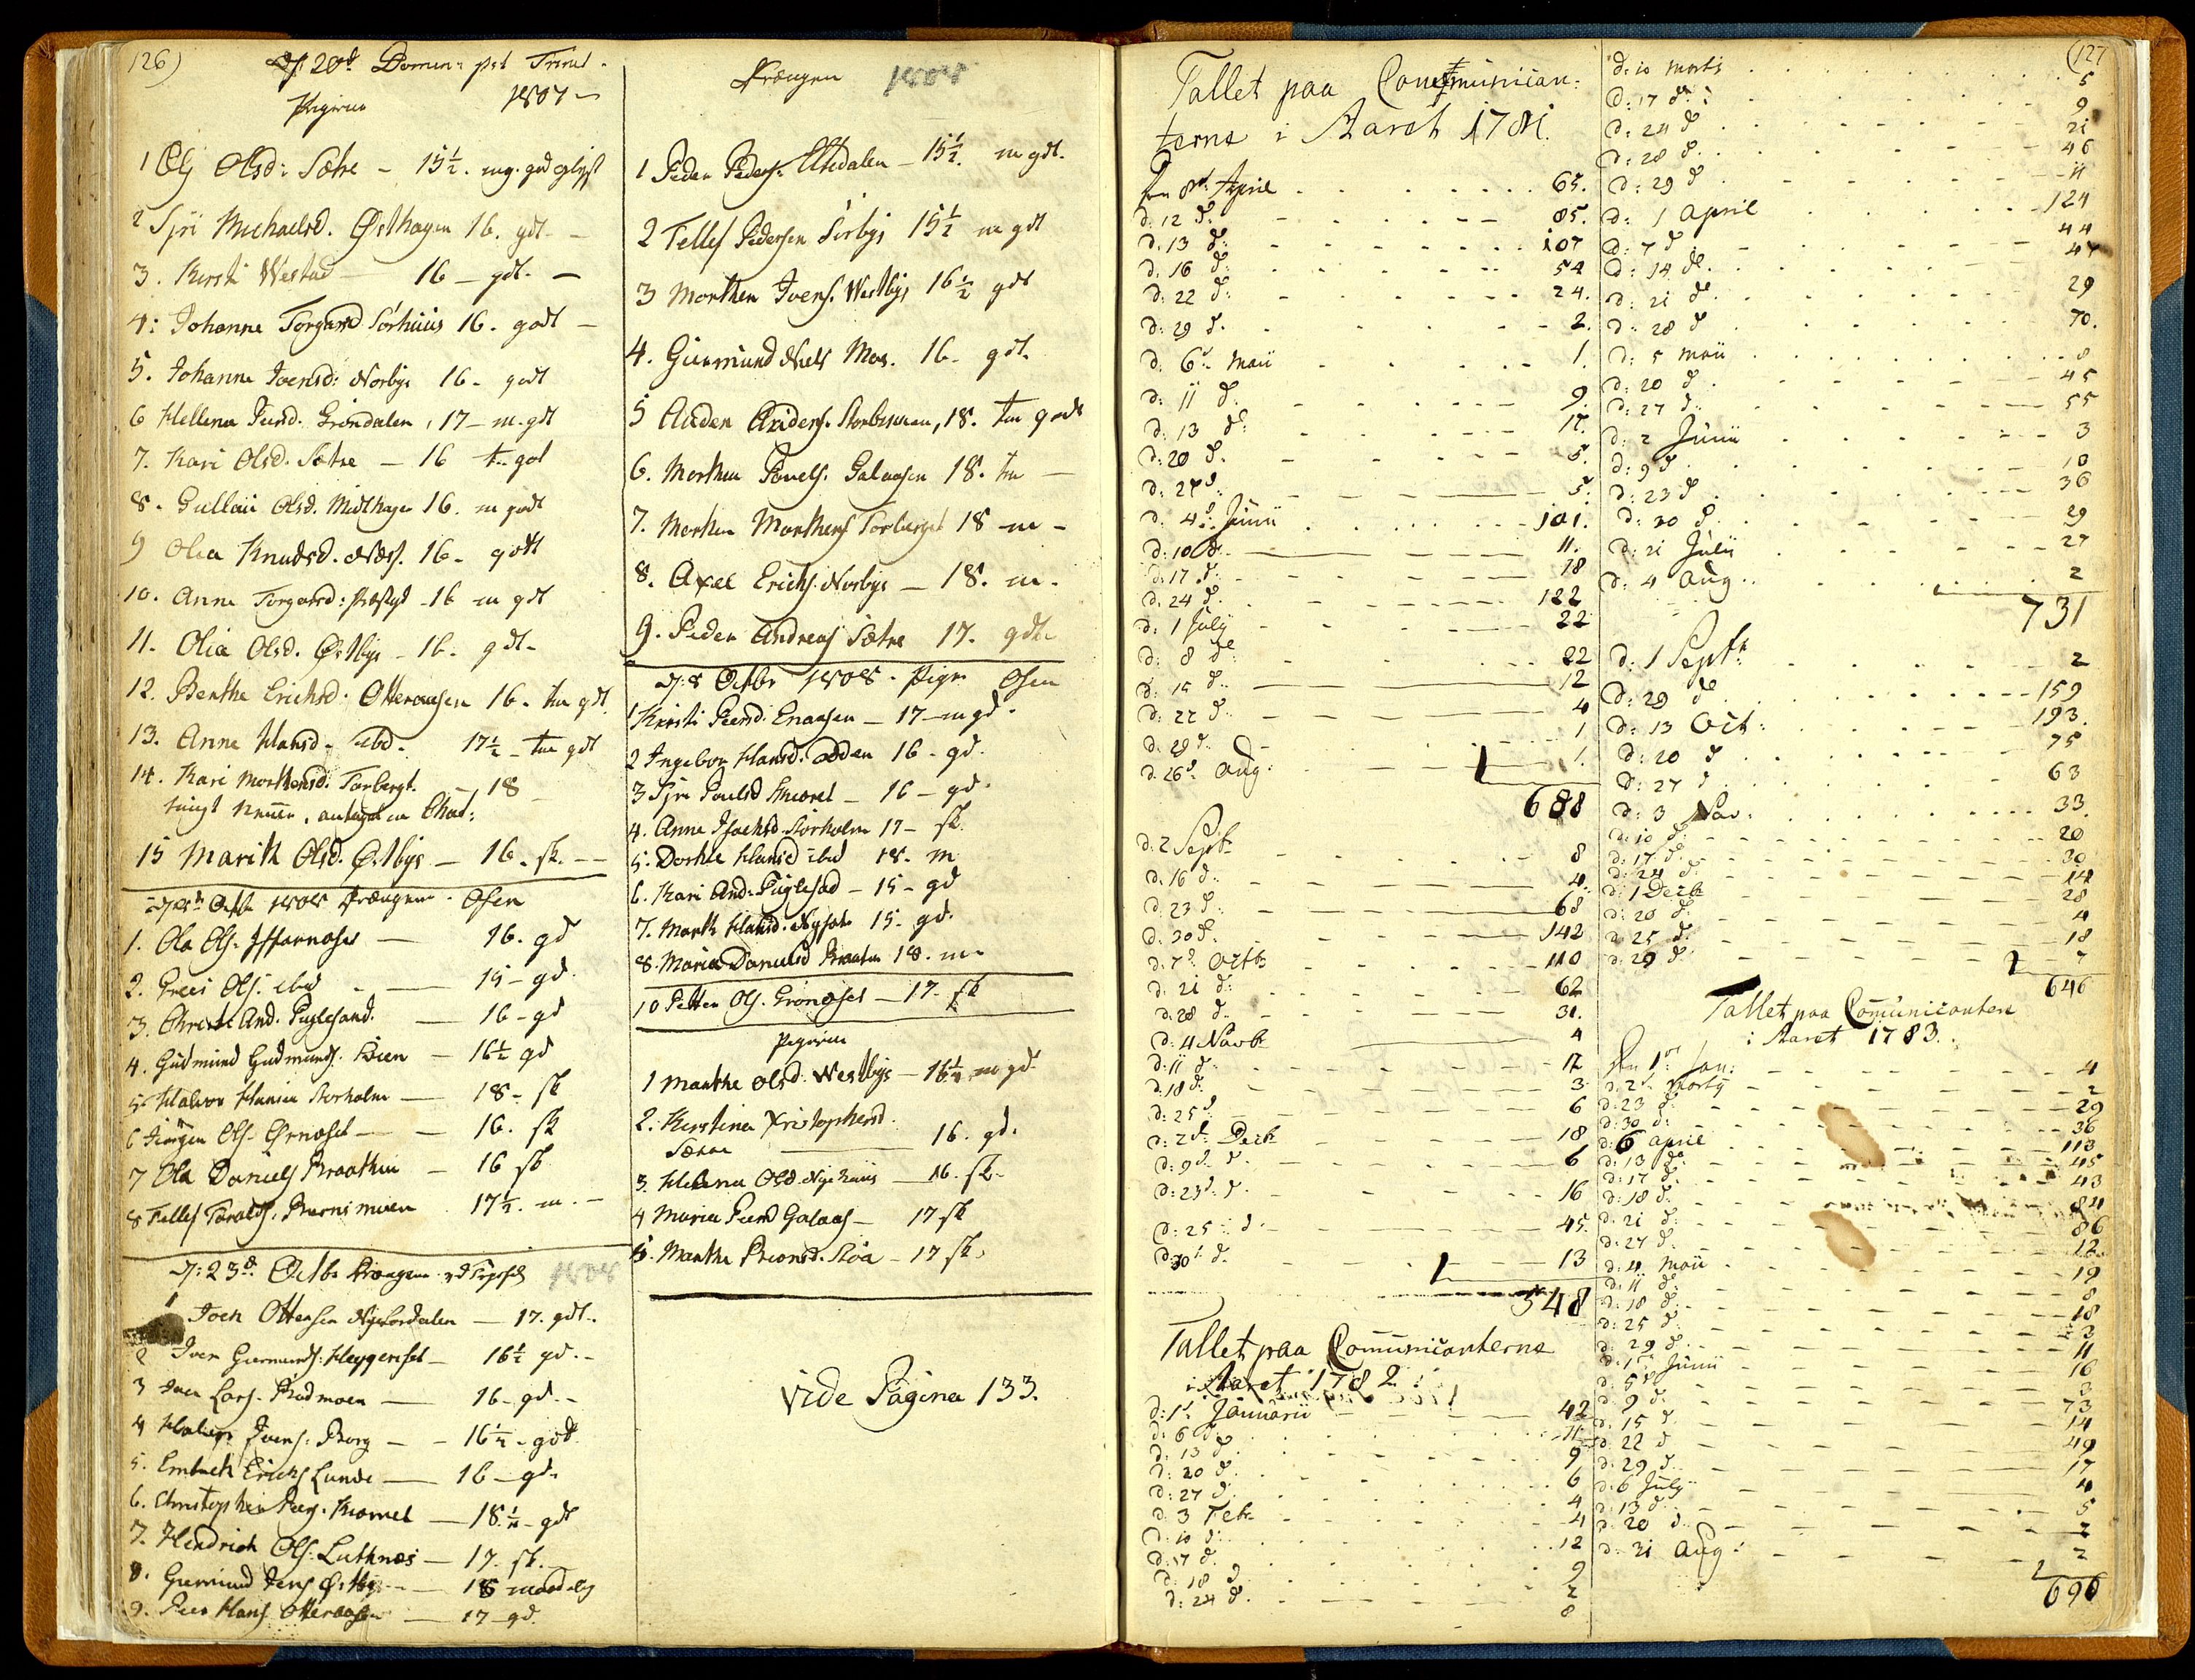 126)
D. 20de Domin: pst Trinit.
Pigerne 1807
1 Olsd: Sætre - 15½. mg. god
2 Siri Michaelsd. Østhagen 16. gdt. -
3. Kersti Westad - 16 - gdt. -
4: Johanne Torgersd Sørhuus 16. godt -
5. Johanne Iversd: Norbye 16 - godt
6 Hellena Peersd. Grøndalen, 17 - m. gdt
7. Kari Olsd. Sætre - 16
8. Gulloui Olsd. Midthagen 16. m godt
9 Olea Knudsd. 16 - godt
10. Anne Torgersd: 16 m gdt
11. Olia Olsd. Østbye - 16 - gdt -
12. Berthe Erichsd. Otteraasen 16 - tm gdt
13. Anne Hansd - ibd - 17½ - tm gdt
14. Kari Morthensd. Torbergt. - 18 -
15 Marith Olsd. Østbye - 16. sk. --
1808 Drængene - Osen
1. Ola Ols. - 16. gd
2. Ols. ibid - 15 - gd.
3. And. Fuglesand. - 16 - gd
4. Gudmund Gudmunds. - 16½ gd
5. Halvor Hansen Storholm - 18 - sk
6 Jørgen Ols. Ørnaset - 16. sk
7 Ola Daniels Braathen - 16 sk
8 Tellef 17½. m. -
D: 23de Octbr Drængene 1808
1 Joen Ottersen Nysordalen - 17. gdt..
2 Iver Giermunds: Heggeriset - 16½ gd. -
3 Lars. Rødmoen - 16 - gd. -
4 Halvor Ivers: Berg - - 16½ - godt
5. Embreth Erichs Lunde - 16 - gd.
6. Christopher Peers. - 18½ - gdt
7. Hendrich Ols. Luthnæs - 17. sk.
8. Giermund Jens Østbye - 18 maadelig
9. Peer Hans. Otteraasen - 17 - gd.
Drængene 1808
1 Peder Peders. - 15½. m gdt.
2 Tellef Pedersen Sørbye 15½ m gdt
3 Morthen Ivers. Westbye 16½ gdt
4. Giermund Niels Moe. 16 - gdt.
5 Anders. 18. tm godt
6. Morthen Povels. Galaasen 18. tm -
7. Morthen Morthens Torberget 18 - m -
8. Axel Erichs. Norbye - 18. m -
9. Peder Andreas Sætre 17. gdt.
D: 8 Octbr 1808 - Piger Osen
1 Kirsti Peersd. Enaasen - 17 - m gd.
2 Ingebor Hansd. Odden 16 - gd.
3 Siri Poulsd - 16 - gd.
4. Anne Storholm 17 - sk.
5. Dorthe Hansd ibid 18. m
6. Kari And. Fuglesad - 15 - gd
7. Marth Hansd. 15 - gd.
8. Maria Danielsd Braaten 18. m
10 Petter Ols. Grønoset - 17. sk
Pigerne
1 Marthe Olsd. Westbye - 16½ m gd
2. Kirstina Xristophersd.
Sætre - 16. gd.
3. Helena Olsd. Nyehuus - 16. sk.
4 Maria Peersd Galaas - 17 sk
5. Marthe Støa - 17 sk.
Vide Pagina 133.
127
Tallet paa Communican:
terne i Aaret 1781.
Den 8de April 65.
d: 12 d. 85.
d. 13 d: 107
d: 16 d: 54
d: 22 d: 24.
d: 29 d. 2.
d. 6te Maii 1.
d: 11 d. 9.
d: 13 d: 17.
d: 20 d. 5.
d: 27 d. 5.
d. 4de Junii 101.
d: 10 d. 11.
d: 17 d. 18
d. 24 d. 122
d: 1 July 22
d: 8 d. 22
d: 15 d. 12
d: 22 d. 4
d: 29 d. 1
d. 26 d. Aug. 1.
688
d: 2 Septr 8
d. 16 d. 4
d. 23 d. 68
d. 30 d. 142
d. 7de Octbr 110
d: 21 d: 62
d: 28 d. 31.
d: 4 Novbr 4
d: 11 d. 12
d: 18 d. 3
d: 25 d. 6
d: 2de Decbr 18
d: 9de d. 6
d: 23 d. 16
d: 25 d. 45
d: 30 d. 13
548
Tallet paa Comunicanterne
i Aaret 1782.
d: 1 Januarii 42
d: 6 d. 11
d: 13 d. 9
d: 20 d. 6
d: 27 d. 4
d. 3 Febr. 4
d: 10 d: 12
d: 17 d. 9
d: 18 d. 2
d: 24 d. 8
d: 10 Martii 5
d: 17 d. 9
d: 24 d. 21
d: 28 d. 46
d: 29 d. 11
d: 1 April 124
d: 7 d. 44
d: 14 d. 47
d: 21 d. 29
d: 28 d. 70.
d: 5 Maii 8
d: 20 d. 45
d: 27 d. 55
d: 2 Junii 3
d: 9 d. 10
d: 23 d. 36
d: 30 d. 29
d: 21 Julii 27
d: 4 Aug. 2
731
d: 1 Septr 2
d: 29 d. 159
d: 13 Oct: 193.
d: 20 d 75
d: 27 d. 63
d: 3 Nov: 33
d: 10 d. 20
d: 17 d. 30
d: 24 d. 14
d: 1 Decbr 28
d: 20 d. 4
d: 25 d. 18
d: 29 d. 7
646
Tallet paa Comunicantere
i Aaret 1783.
Den 1ste Jan: 4
d: 2 Martij 2
d: 23 d. 29
d: 30 d: 36
d: 6 April 113
d: 13 d. 45
d: 17 d. 43
d: 18 d. 84
d: 21 d: 86
d: 27 d. 12
d: 4 Maii 19
d: 11 d. 8
d: 18 d. 18
d: 25 d. 2
d: 29 d. 11
d: 1ste Junii 16
d: 5 d. 3
d: 9 d. 73
d: 15 d. 14
d: 22 d 49
d: 29 d. 17
d: 6 July 4
d: 13 d. 5
d: 20 d. 2
d: 31 Aug. 2
696